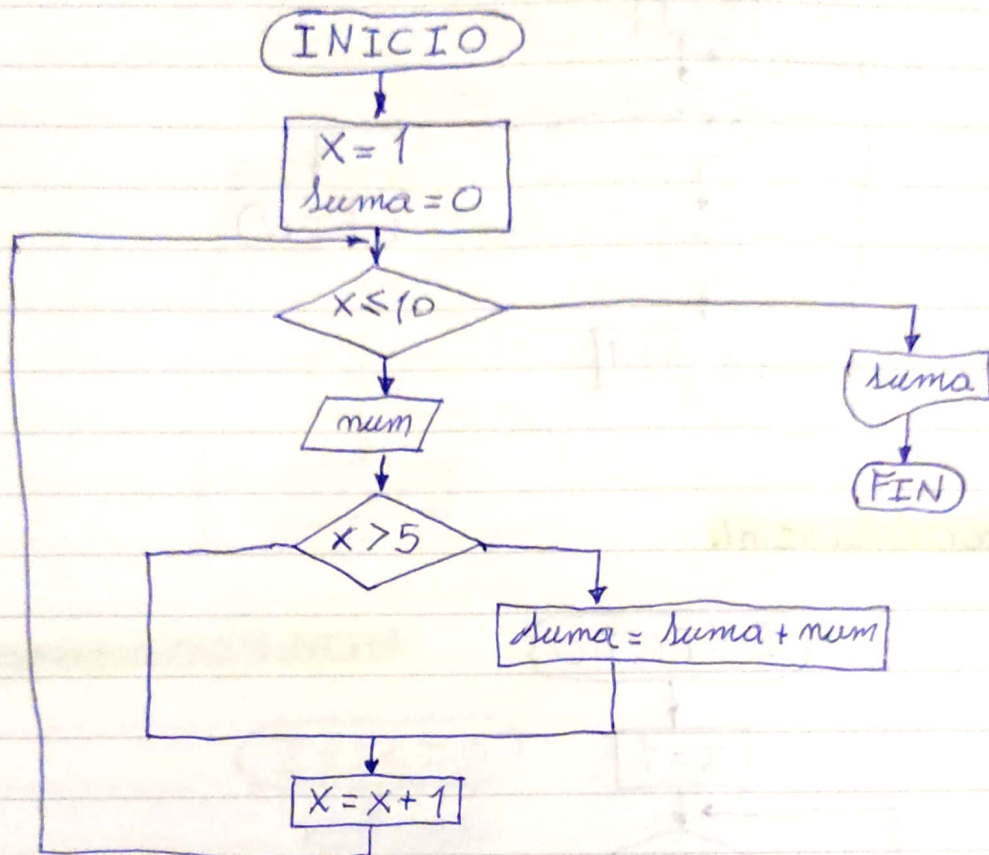 INICIO
X = 1
suma = 0
x ≤ 10
suma
num
FIN
x > 5
suma = suma + num
X = x + 1